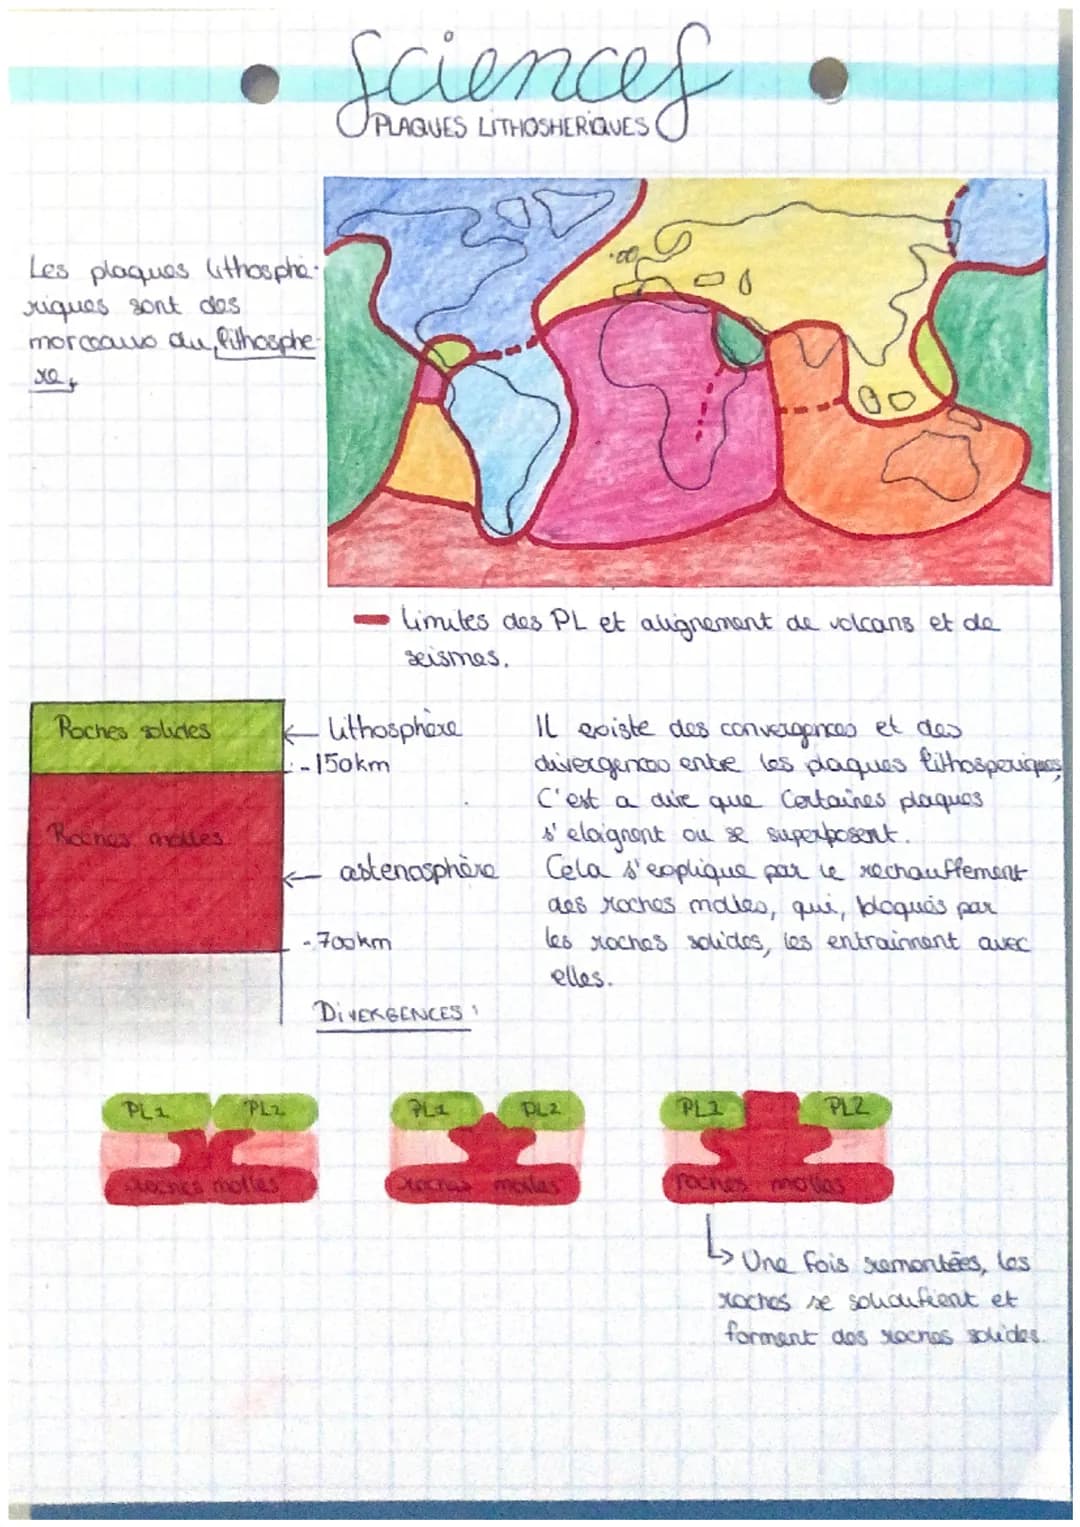 Sciences
PLAQUES LITHOSHERIQUES
Les plaques lithosphé-
riques sont des
morceaux du lithosphe-
re,
Limites des PL et alignement de volcans et de
seismes.
Roches solides
lithosphère
-150km
Roches molles
astenosphère
-700km
Il existe des convergences et des
divergences entre les plaques lithosperiques
C'est a dire que Certaines plaques
s'elaignent ou se superposent.
Cela s'explique par le rechauffement
des roches molles, qui, bloqués par
les roches solides, les entrainnent avec
elles.
DIVERGENCES :
PL1 PL2
roches molles
PL1 PL2
roches molles
PL1 PL2
roches molles
Une fois remontées, les
roches se solidifient et
forment des roches solides.